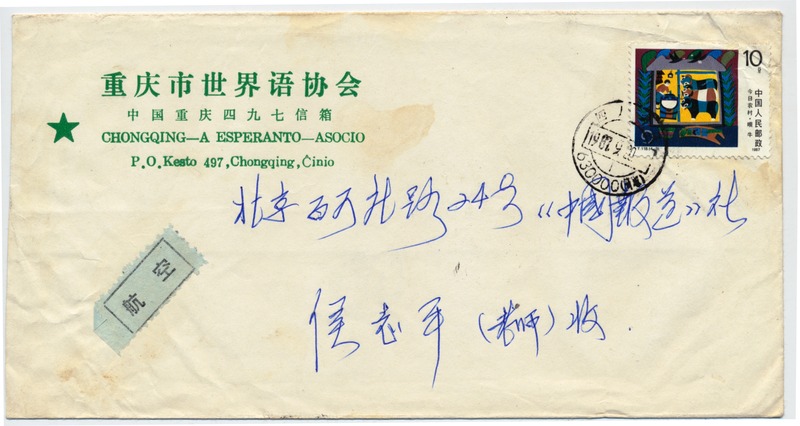 重庆市世界语协会
中国重庆四九七信箱
CHONGQING—A ESPERANTO—ASOCIO
P.O.Kesto 497,Chongqing,Ĉinio
10分
中国人民邮政
今日农村·喂牛
1987
630000
北京百万庄路24号《中国报道》社
侯志平（老师）收.
航空